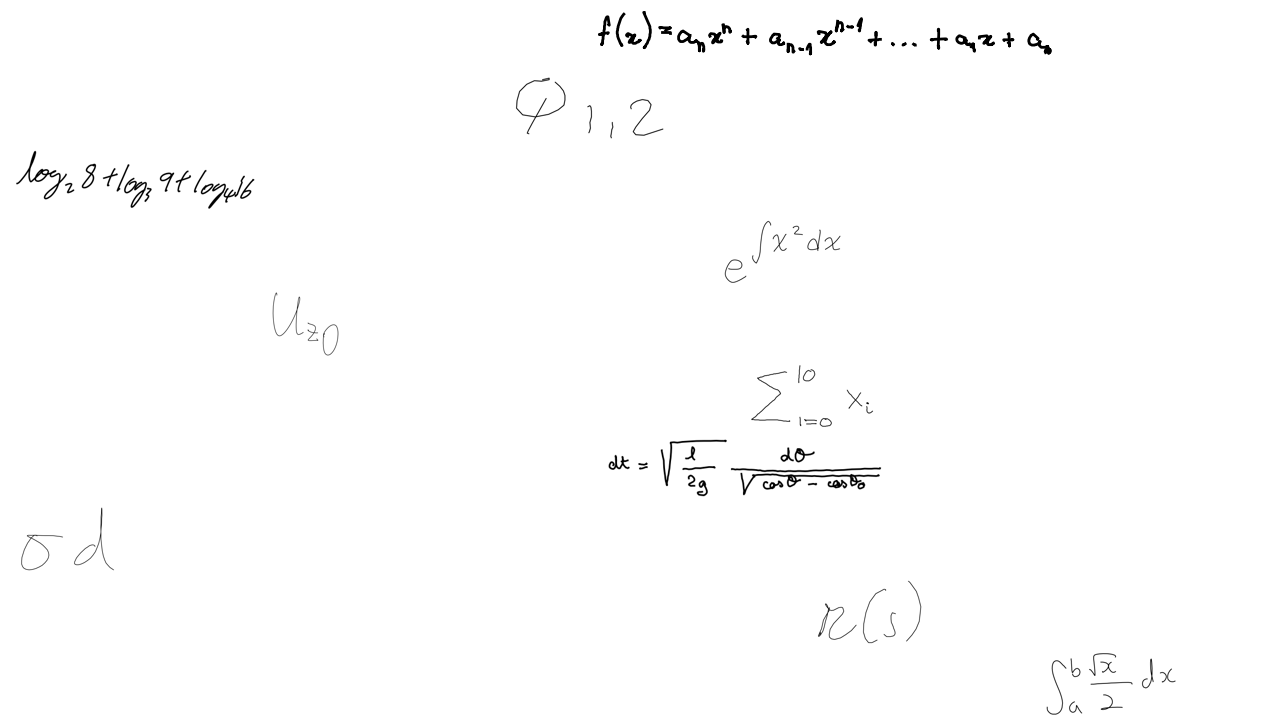 f(x) = aₙxⁿ + aₙ₋₁xⁿ⁻¹ + ... + a₁x + a₀
φ 1,2
log₂ 8 + log₃ 9 + log₄ 16
e^{∫x² dx}
U_{z0}
∑_{i=0}^{10} x_i
dt = √(l/2g) dθ/√(cosθ − cosθ₀)
σ d
r(s)
∫_a^b √x/2 dx